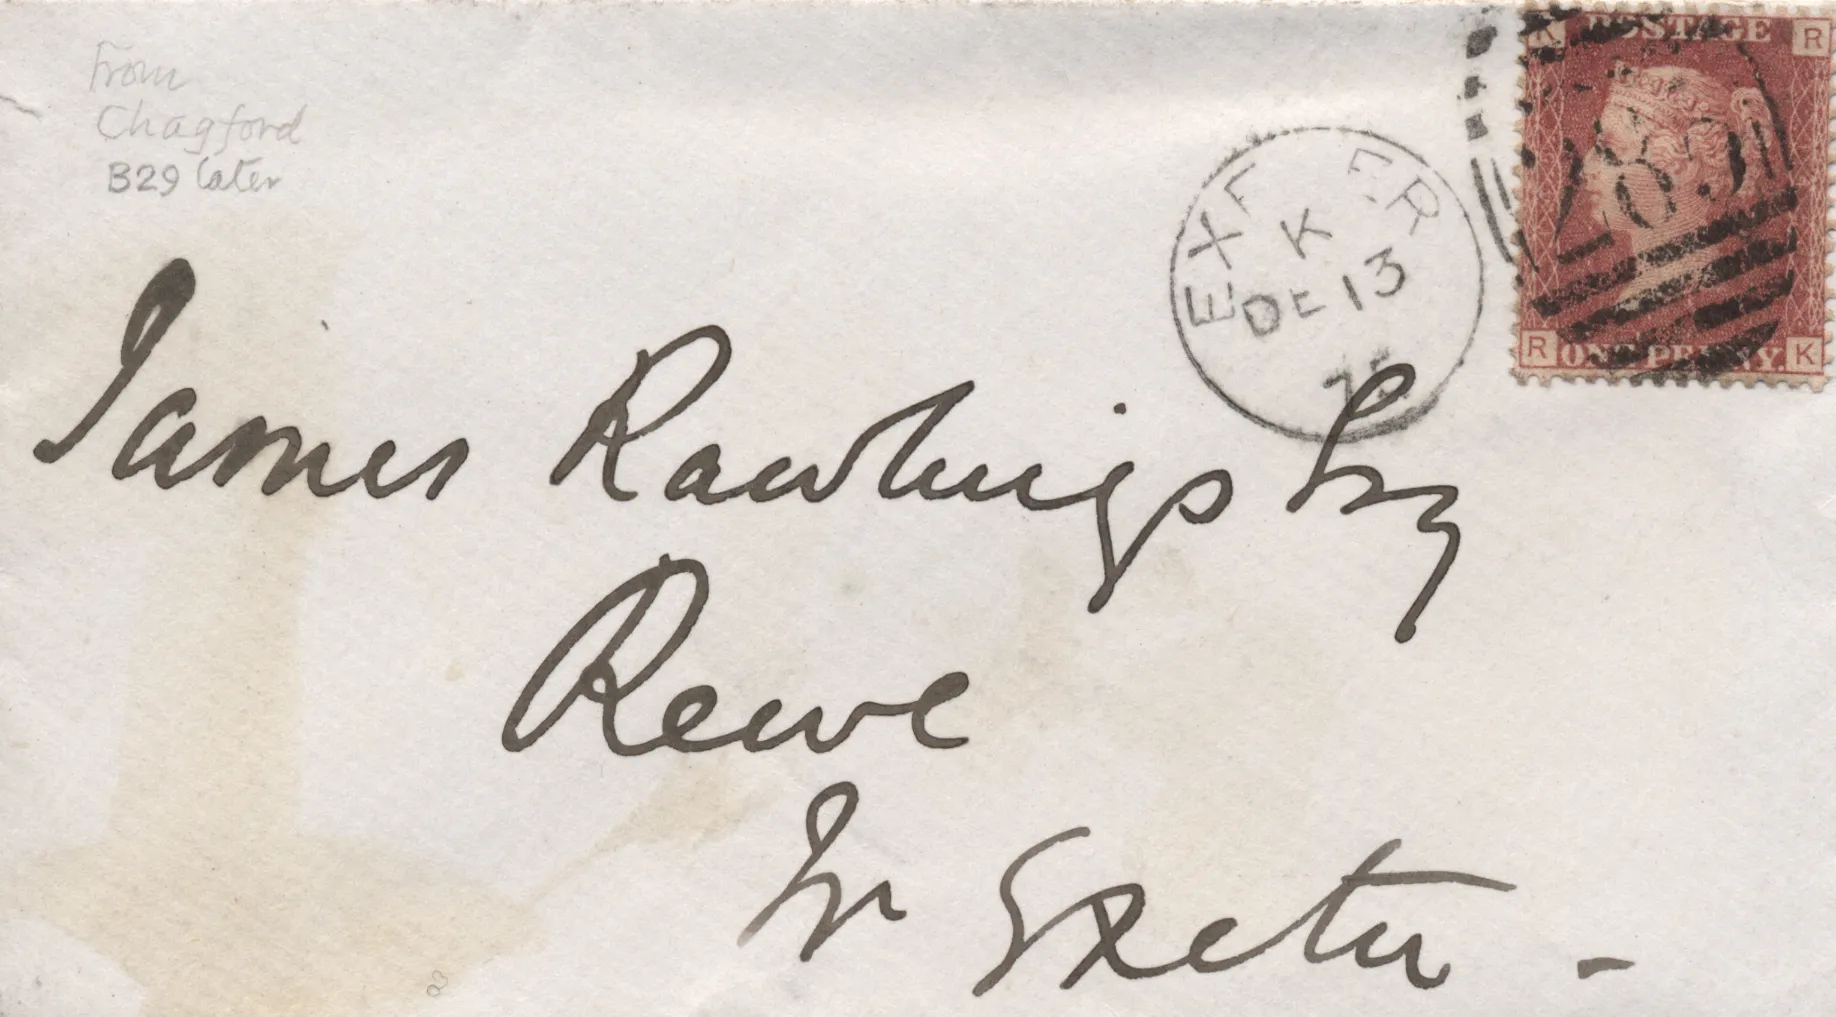 From
Chagford
B29 later
K POSTAGE R
285
R ONE PENNY. K
EXETER
K
DE 13
James Rawlings Esq
Rewe
Nr Exeter -